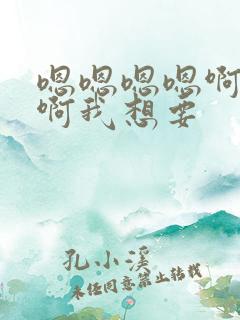 嗯嗯嗯嗯啊
啊我想要
孔小溪
未经同意禁止转载